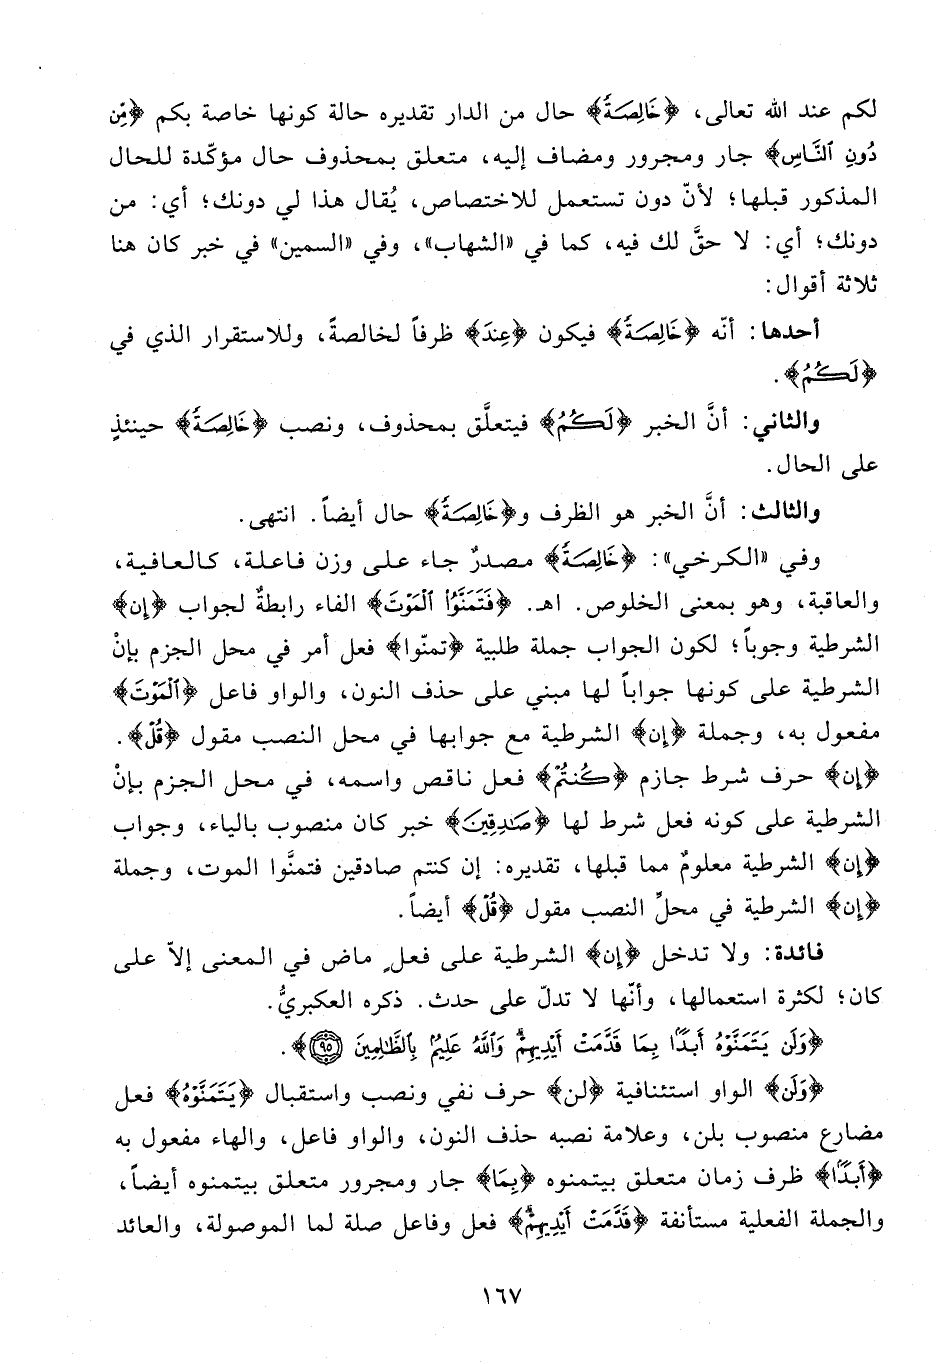 لكم عند الله تعالى، ﴿خَالِصَةً﴾ حال من الدار تقديره حالة كونها خاصة بكم ﴿مِّن
دُونِ ٱلنَّاسِ﴾ جار ومجرور ومضاف إليه، متعلق بمحذوف حال مؤكّدة للحال
المذكور قبلها؛ لأنّ دون تستعمل للاختصاص، يُقال هذا لي دونك؛ أي: من
دونك؛ أي: لا حقَّ لك فيه، كما في «الشهاب»، وفي «السمين» في خبر كان هنا
ثلاثة أقوال:
أحدها: أنّه ﴿خَالِصَةً﴾ فيكون ﴿عِندَ﴾ ظرفاً لخالصةً، وللاستقرار الذي في
﴿لَكُمُ﴾.
والثاني: أنَّ الخبر ﴿لَكُمُ﴾ فيتعلَّق بمحذوف، ونصب ﴿خَالِصَةً﴾ حينئذٍ
على الحال.
والثالث: أنَّ الخبر هو الظرف و﴿خَالِصَةً﴾ حال أيضاً. انتهى.
وفي «الكرخي»: ﴿خَالِصَةً﴾ مصدرٌ جاء على وزن فاعلة، كالعافية،
والعاقبة، وهو بمعنى الخلوص. اهـ. ﴿فَتَمَنَّوُا۟ ٱلْمَوْتَ﴾ الفاء رابطةٌ لجواب ﴿إن﴾
الشرطية وجوباً؛ لكون الجواب جملة طلبية ﴿تمنّوا﴾ فعل أمر في محل الجزم بإنْ
الشرطية على كونها جواباً لها مبني على حذف النون، والواو فاعل ﴿ٱلْمَوْتَ﴾
مفعول به، وجملة ﴿إن﴾ الشرطية مع جوابها في محل النصب مقول ﴿قُلْ﴾.
﴿إن﴾ حرف شرط جازم ﴿كُنتُمْ﴾ فعل ناقص واسمه، في محل الجزم بإنْ
الشرطية على كونه فعل شرط لها ﴿صَـٰدِقِينَ﴾ خبر كان منصوب بالياء، وجواب
﴿إن﴾ الشرطية معلومٌ مما قبلها، تقديره: إن كنتم صادقين فتمنَّوا الموت، وجملة
﴿إن﴾ الشرطية في محلِّ النصب مقول ﴿قُلْ﴾ أيضاً.
فائدة: ولا تدخل ﴿إن﴾ الشرطية على فعلٍ ماض في المعنى إلاّ على
كان؛ لكثرة استعمالها، وأنّها لا تدلّ على حدث. ذكره العكبريُّ.
﴿وَلَن يَتَمَنَّوْهُ أَبَدًۢا بِمَا قَدَّمَتْ أَيْدِيهِمْ ۗ وَٱللَّهُ عَلِيمٌۢ بِٱلظَّـٰلِمِينَ ٩٥﴾.
﴿وَلَن﴾ الواو استئنافية ﴿لن﴾ حرف نفي ونصب واستقبال ﴿يَتَمَنَّوْهُ﴾ فعل
مضارع منصوب بلن، وعلامة نصبه حذف النون، والواو فاعل، والهاء مفعول به
﴿أَبَدًۢا﴾ ظرف زمان متعلق بيتمنوه ﴿بِمَا﴾ جار ومجرور متعلق بيتمنوه أيضاً،
والجملة الفعلية مستأنفة ﴿قَدَّمَتْ أَيْدِيهِمْ ۗ﴾ فعل وفاعل صلة لما الموصولة، والعائد
١٦٧